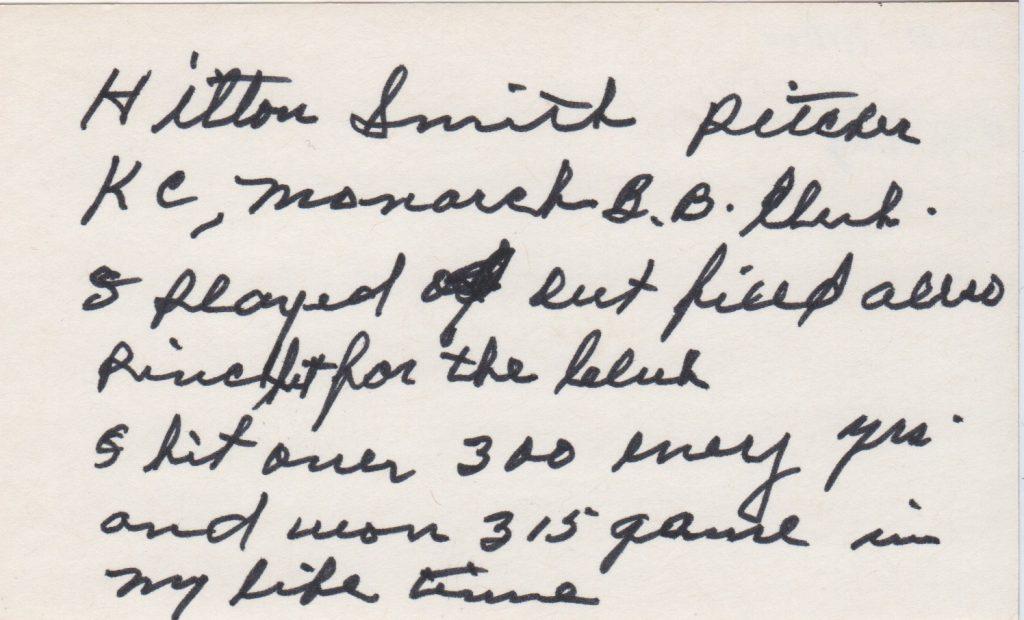 Hilton Smith Pitcher
K C, Monarch B.B. Club.
I played out field also
Pinch hit for the Club
I hit over 300 every yrs.
and won 315 game in
my life time